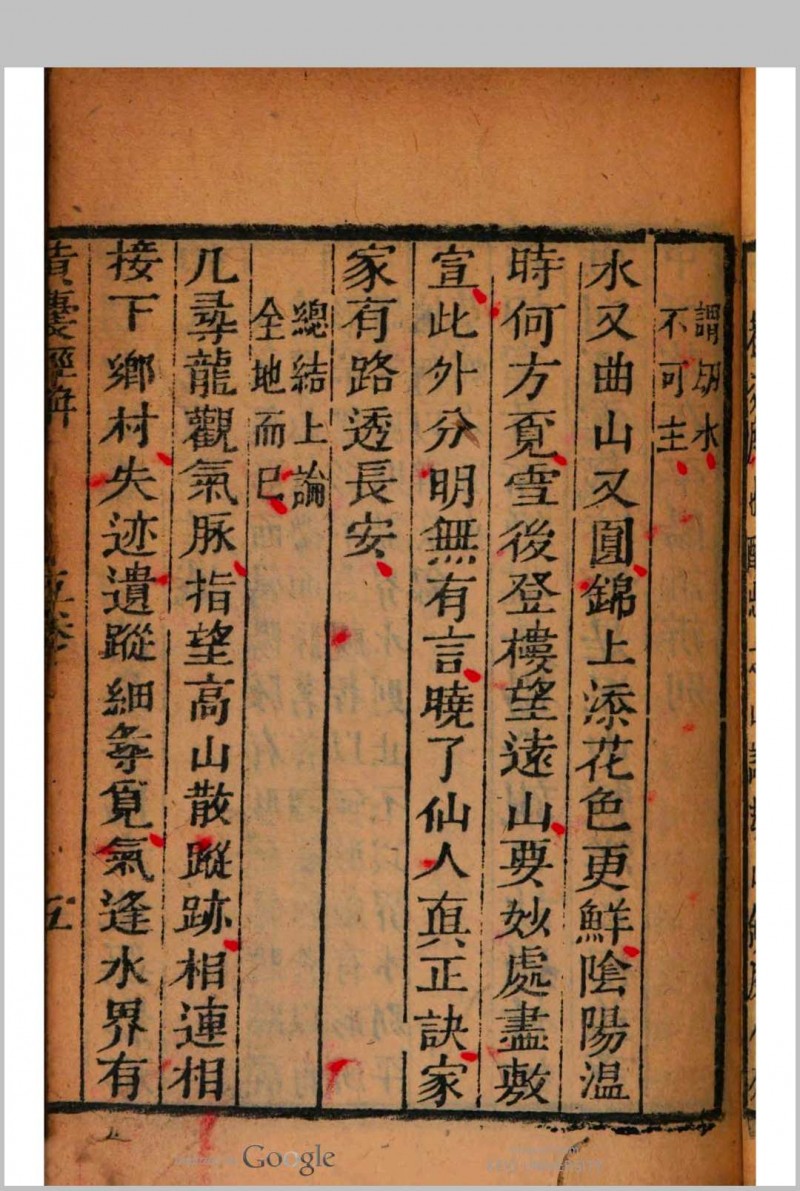 謂切水
不可主
水又曲山又圓錦上添花色更鮮陰陽温
時何方覔雪後登樓望遠山要妙處盡敷
宣此外分明無有言曉了仙人真正訣家
家有路透長安
總結上論
全地而已
凡尋龍觀氣脉指望高山散蹤跡相連相
接下鄉村失迹遺蹤細尋覓氣逢水界有
五
Google